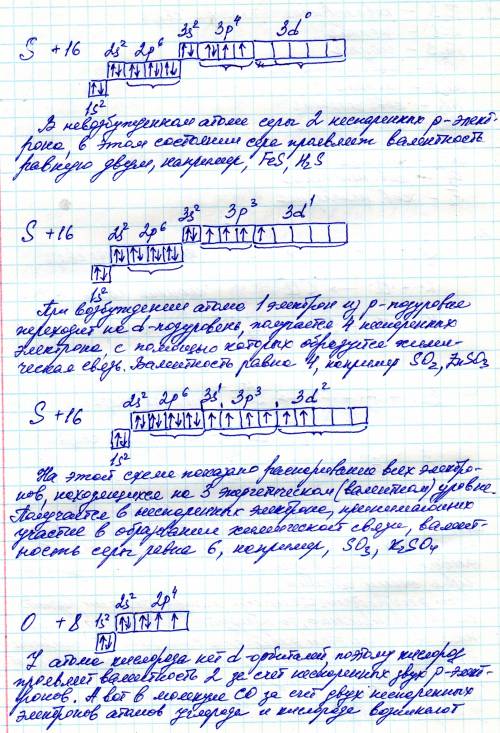 3s² 3p⁴ 3d⁰
S +16 2s² 2p⁶
1s²
В невозбужденном атоме серы 2 неспаренных p-элект-
рона, в этом состоянии сера проявляет валентность
равную двум, например, FeS, H₂S
3s² 3p³ 3d¹
S +16 2s² 2p⁶
1s²
При возбуждении атома 1 электрон из p-подуровня
переходит на d-подуровень, получается 4 неспаренных
электрона с помощью которых образуется химии-
ческая связь. Валентность равна 4, например SO₂, ZnSO₃
2s² 2p⁶ 3s¹ 3p³ 3d²
S +16
1s²
На этой схеме показано распаривание всех электро-
нов, находящихся на 3 энергетическом (валентном) уровне.
Получается 6 неспаренных электрона, принимающих
участие в образовании химической связи, валент-
ность серы равна 6, например, SO₃, K₂SO₄
2s² 2p⁴
O +8 1s²
У атома кислорода нет d-орбиталей, поэтому кислород
проявляет валентность 2 за счет неспаренных двух p-элект-
ронов. А вот в молекуле CO за счет двух неспаренных
электронов атомов углерода и кислорода возникают